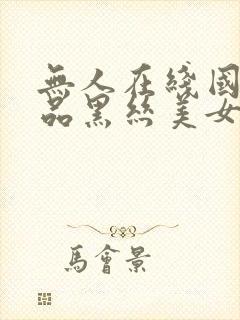 無人在綫國
品黑丝美女
馬會景